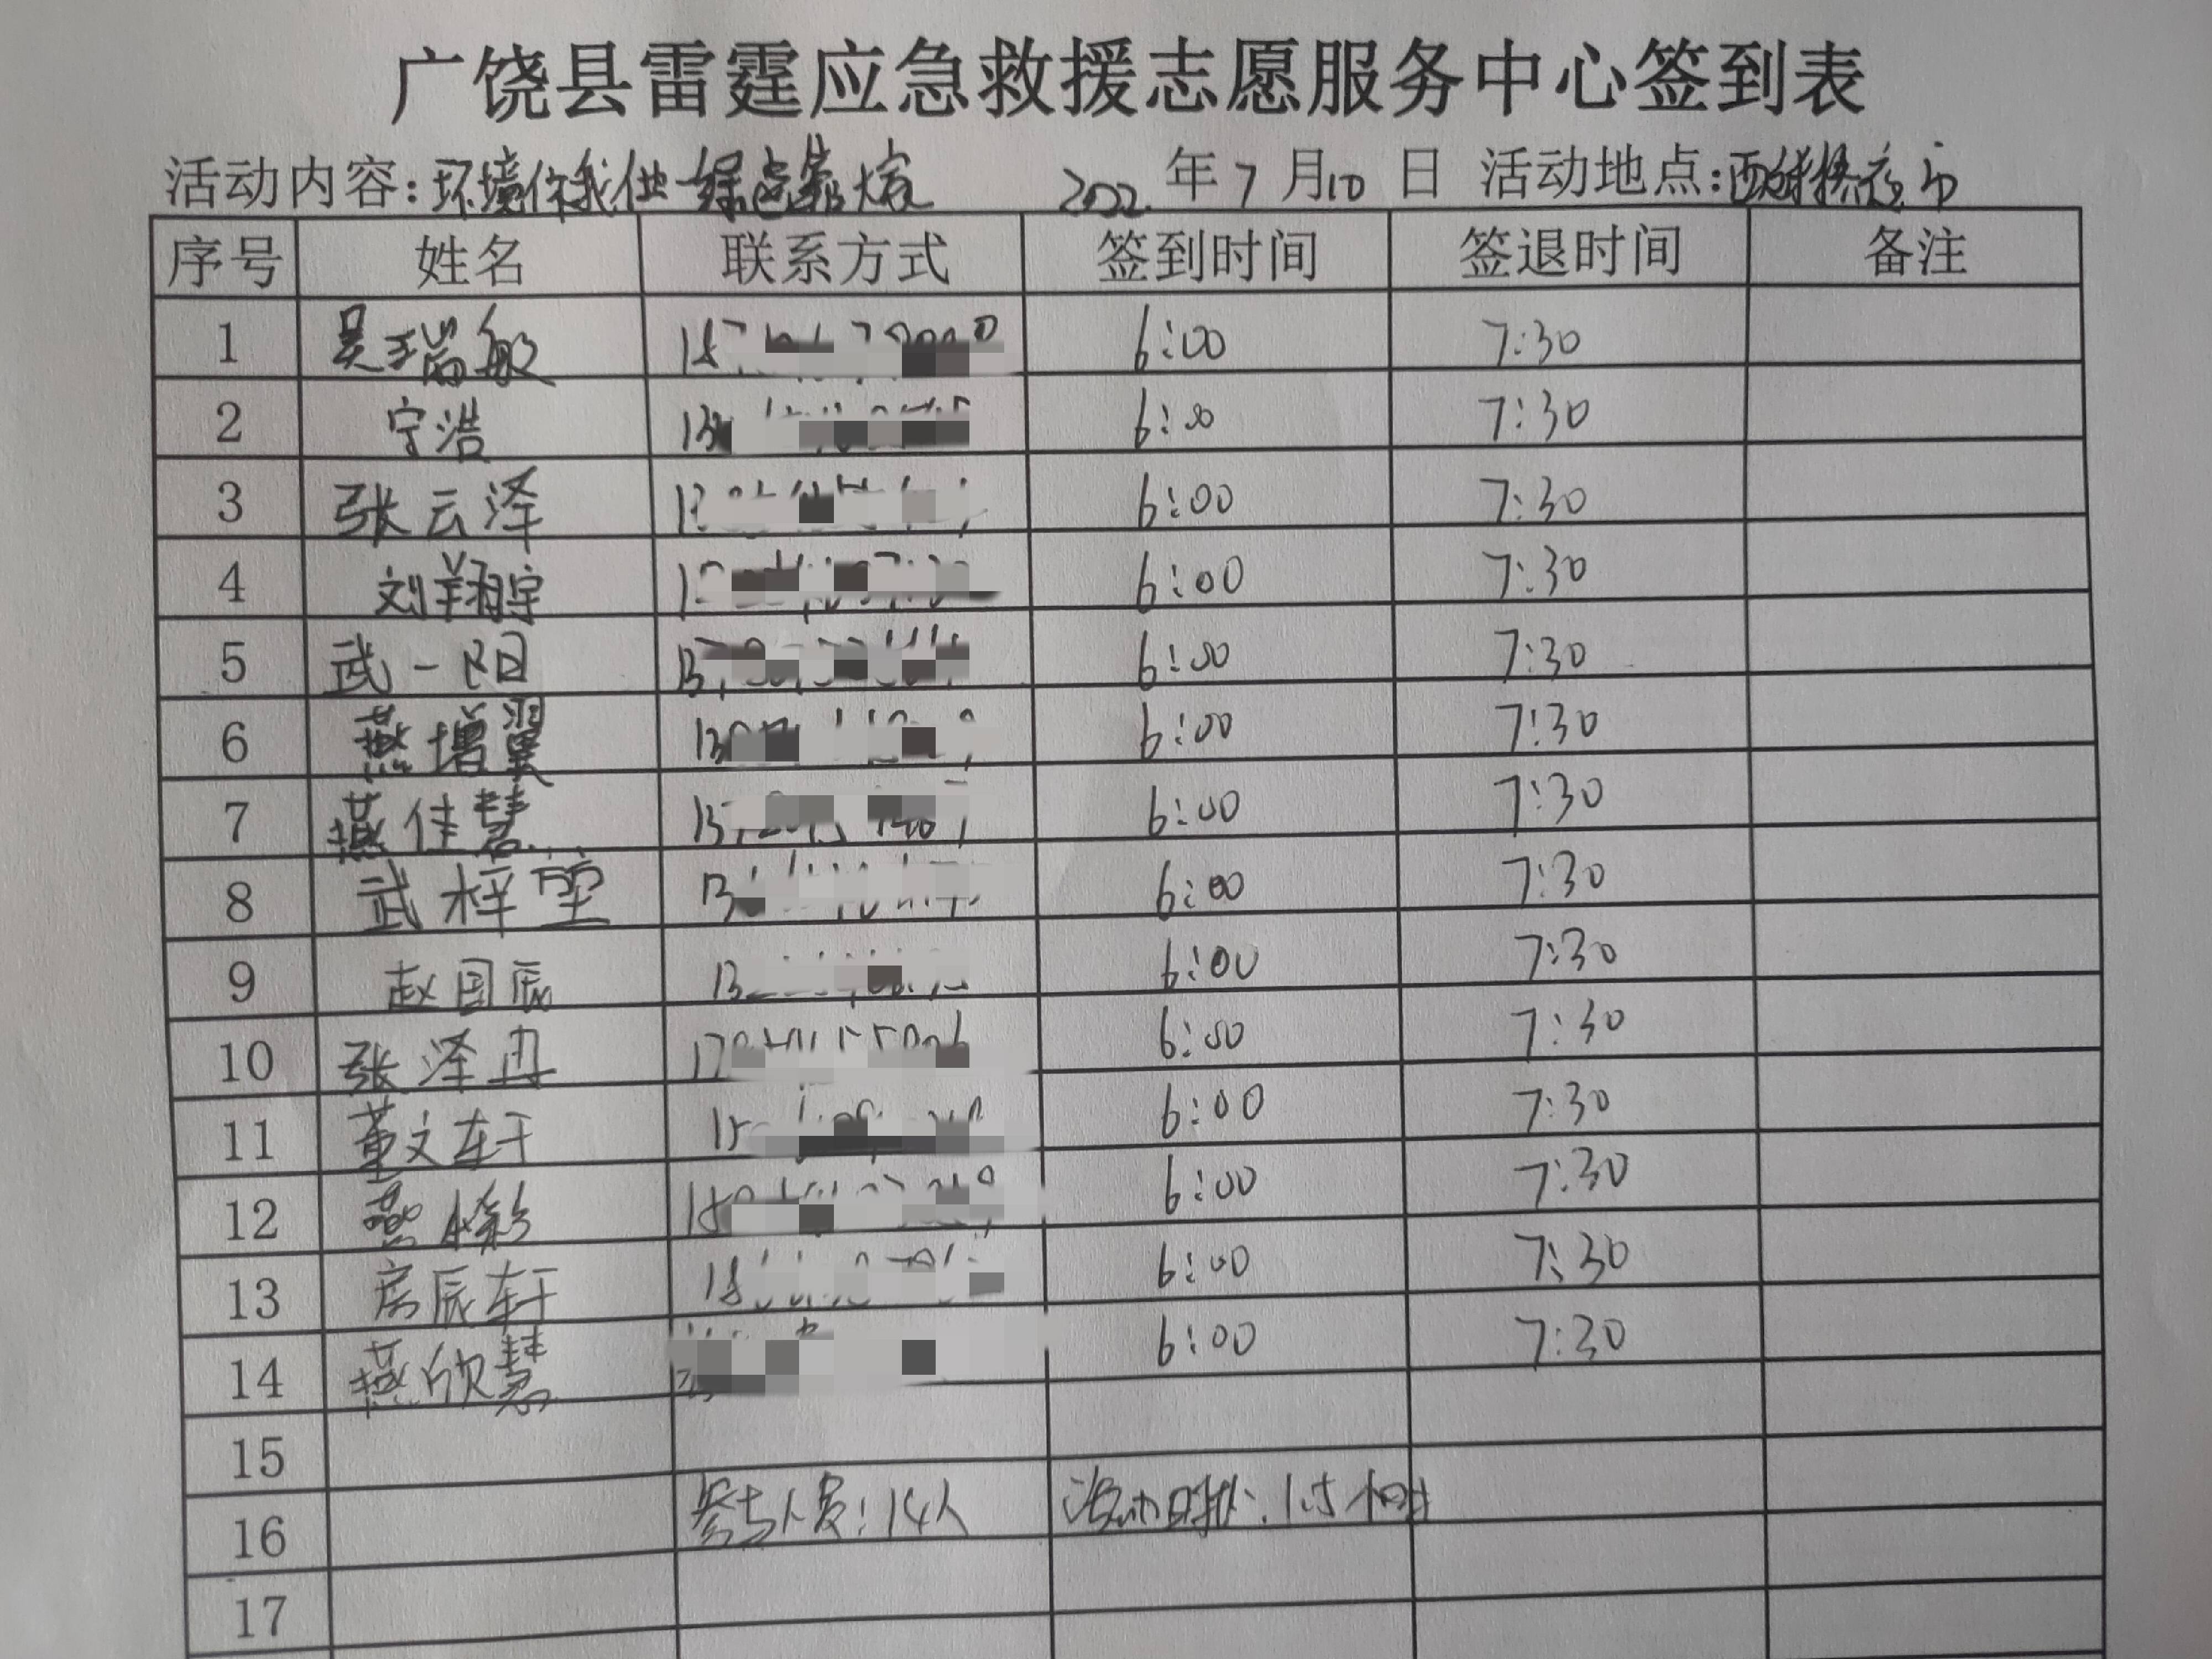 广饶县雷霆应急救援志愿服务中心签到表
活动内容:环境你我他 绿色 2022 年 7 月 10 日 活动地点:西 夜市
序号 姓名 联系方式 签到时间 签退时间 备注
1 吴瑞敏 6:00 7:30
2 宁浩 6:00 7:30
3 张云泽 6:00 7:30
4 刘翔宇 6:00 7:30
5 武一阳 6:00 7:30
6 燕增翼 6:00 7:30
7 燕佳慧 6:00 7:30
8 武梓堃 6:00 7:30
9 赵国辰 6:00 7:30
10 张泽冉 6:00 7:30
11 董文轩 6:00 7:30
12 燕 6:00 7:30
13 房辰轩 6:00 7:30
14 燕欣慧 6:00 7:30
15
16 参与人员:14人 活动时长:1.5个小时
17